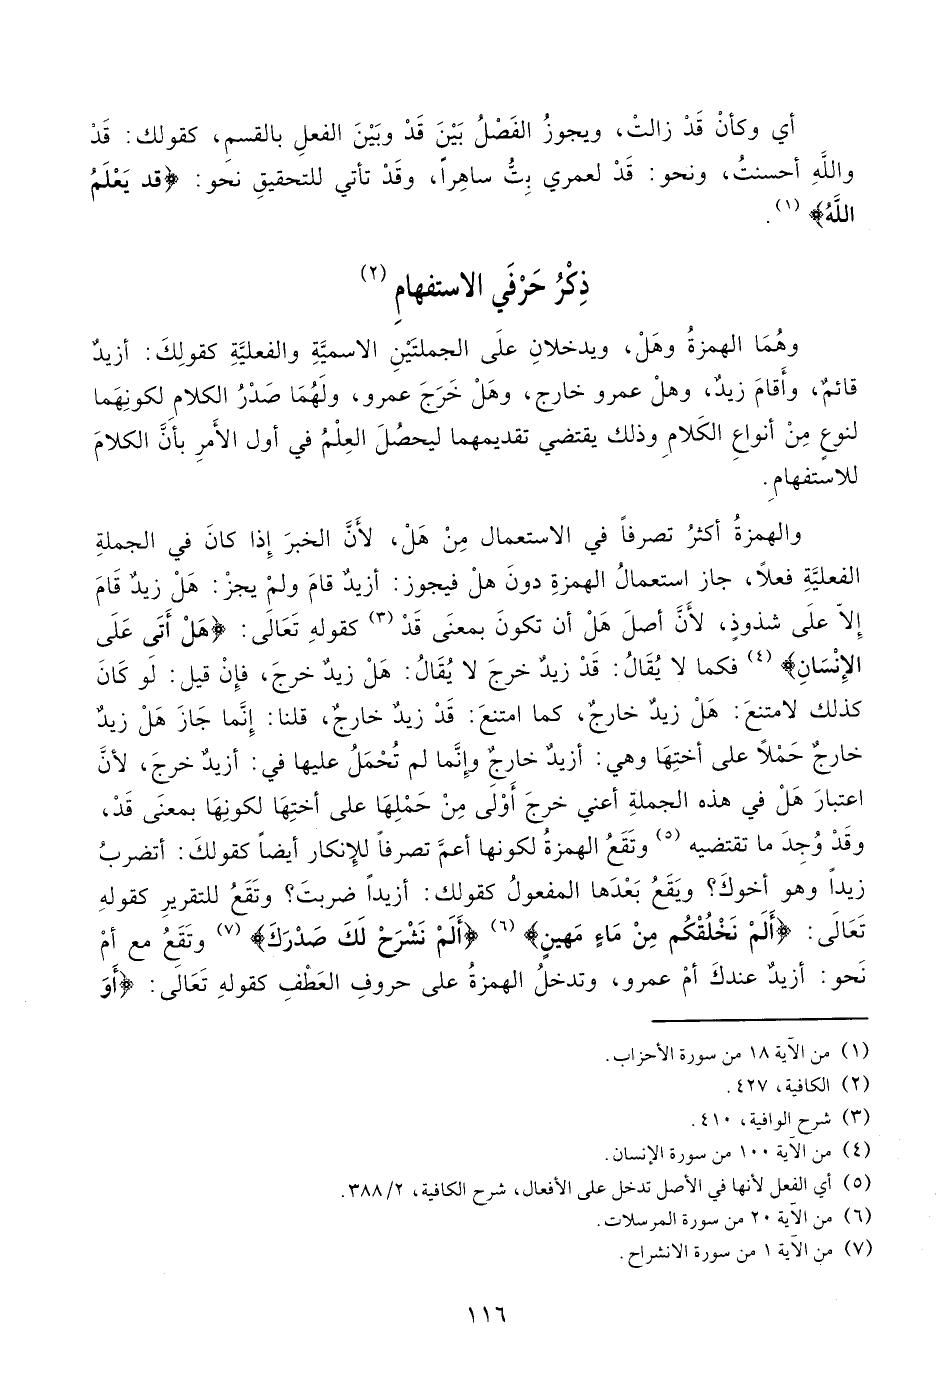 أي وكأنْ قَدْ زالتْ، ويجوزُ الفَصْلُ بَيْنَ قَدْ وبَيْنَ الفعلِ بالقسمِ، كقولك: قَدْ
واللَّهِ أحسنتُ، ونحو: قَدْ لعمري بِتُّ ساهراً، وقَدْ تأتي للتحقيقِ نحَو: ﴿قد يَعْلَمُ
اللَّهُ﴾ (١).
ذِكْرُ حَرْفَي الاستفهامِ (٢)
وهُمَا الهمزةُ وهَلْ، ويدخلانِ علَى الجملتَيْنِ الاسميَّةِ والفعليَّةِ كقولِكَ: أزيدٌ
قائمٌ، وأَقامَ زيدٌ، وهلْ عمرو خارج، وهَلْ خَرَجَ عمرو، ولَهُمَا صَدْرُ الكلامِ لكونِهَما
لنوعٍ مِنْ أنواعِ الكَلامِ وذلك يقتضي تقديمهما ليحصُلَ العِلْمُ في أول الأَمرِ بأنَّ الكلامَ
للاستفهامِ.
والهمزةُ أكثرُ تصرفاً في الاستعمال مِنْ هَلْ، لأَنَّ الخبرَ إذا كانَ في الجملةِ
الفعليَّةِ فعلاً، جاز استعمالُ الهمزةِ دونَ هلْ فيجوز: أزيدٌ قامَ ولمْ يجزْ: هَلْ زيدٌ قَامَ
إلاّ علَى شذوذٍ، لأَنَّ أصلَ هَلْ أن تكونَ بمعنَى قَدْ (٣) كقولهِ تَعَالَى: ﴿هَلْ أَتَى عَلَى
الإِنْسَانِ﴾ (٤) فكما لا يُقَالُ: قَدْ زيدٌ خرجَ لا يُقَالُ: هَلْ زيدٌ خرجَ، فإِنْ قيل: لَو كَانَ
كذلك لامتنعَ: هَلْ زيدٌ خارجٌ، كما امتنعَ: قَدْ زيدٌ خارجٌ، قلنا: إِنَّما جَازَ هَلْ زيدٌ
خارجٌ حَمْلاً على أختِهَا وهي: أزيدٌ خارجٌ وإنَّما لم تُحْمَلُ عليها في: أزيدٌ خرجَ، لأنَّ
اعتبارَ هَلْ في هذه الجملةِ أعني خرجَ أَوْلَى مِنْ حَمْلِهَا على أختِهَا لكونِهَا بمعنَى قَدْ،
وقَدْ وُجِدَ ما تقتضيه (٥) وتَقَعُ الهمزةُ لكونها أعمَّ تصرفاً للإنكار أيضاً كقولكَ: أتضربُ
زيداً وهو أخوكَ؟ ويَقَعُ بَعْدَها المفعولُ كقولك: أزيداً ضربتَ؟ وتَقَعُ للتقريرِ كقولهِ
تَعَالَى: ﴿أَلَمْ نَخْلُقْكُم مِنْ مَاءٍ مَهينٍ﴾ (٦) ﴿أَلَمْ نَشْرَحْ لَكَ صَدْرَكَ﴾ (٧) وتَقَعُ مع أمْ
نَحو: أزيدٌ عندكَ أمْ عمرو، وتدخلُ الهمزةُ على حروفِ العَطْفِ كقولهِ تَعَالَى: ﴿أَوَ
(١) من الآية ١٨ من سورة الأحزاب.
(٢) الكافية، ٤٢٧.
(٣) شرح الوافية، ٤١٠.
(٤) من الآية ١٠٠ من سورة الإنسان.
(٥) أي الفعل لأنها في الأصل تدخل على الأفعال، شرح الكافية، ٣٨٨/٢.
(٦) من الآية ٢٠ من سورة المرسلات.
(٧) من الآية ١ من سورة الانشراح.
١١٦